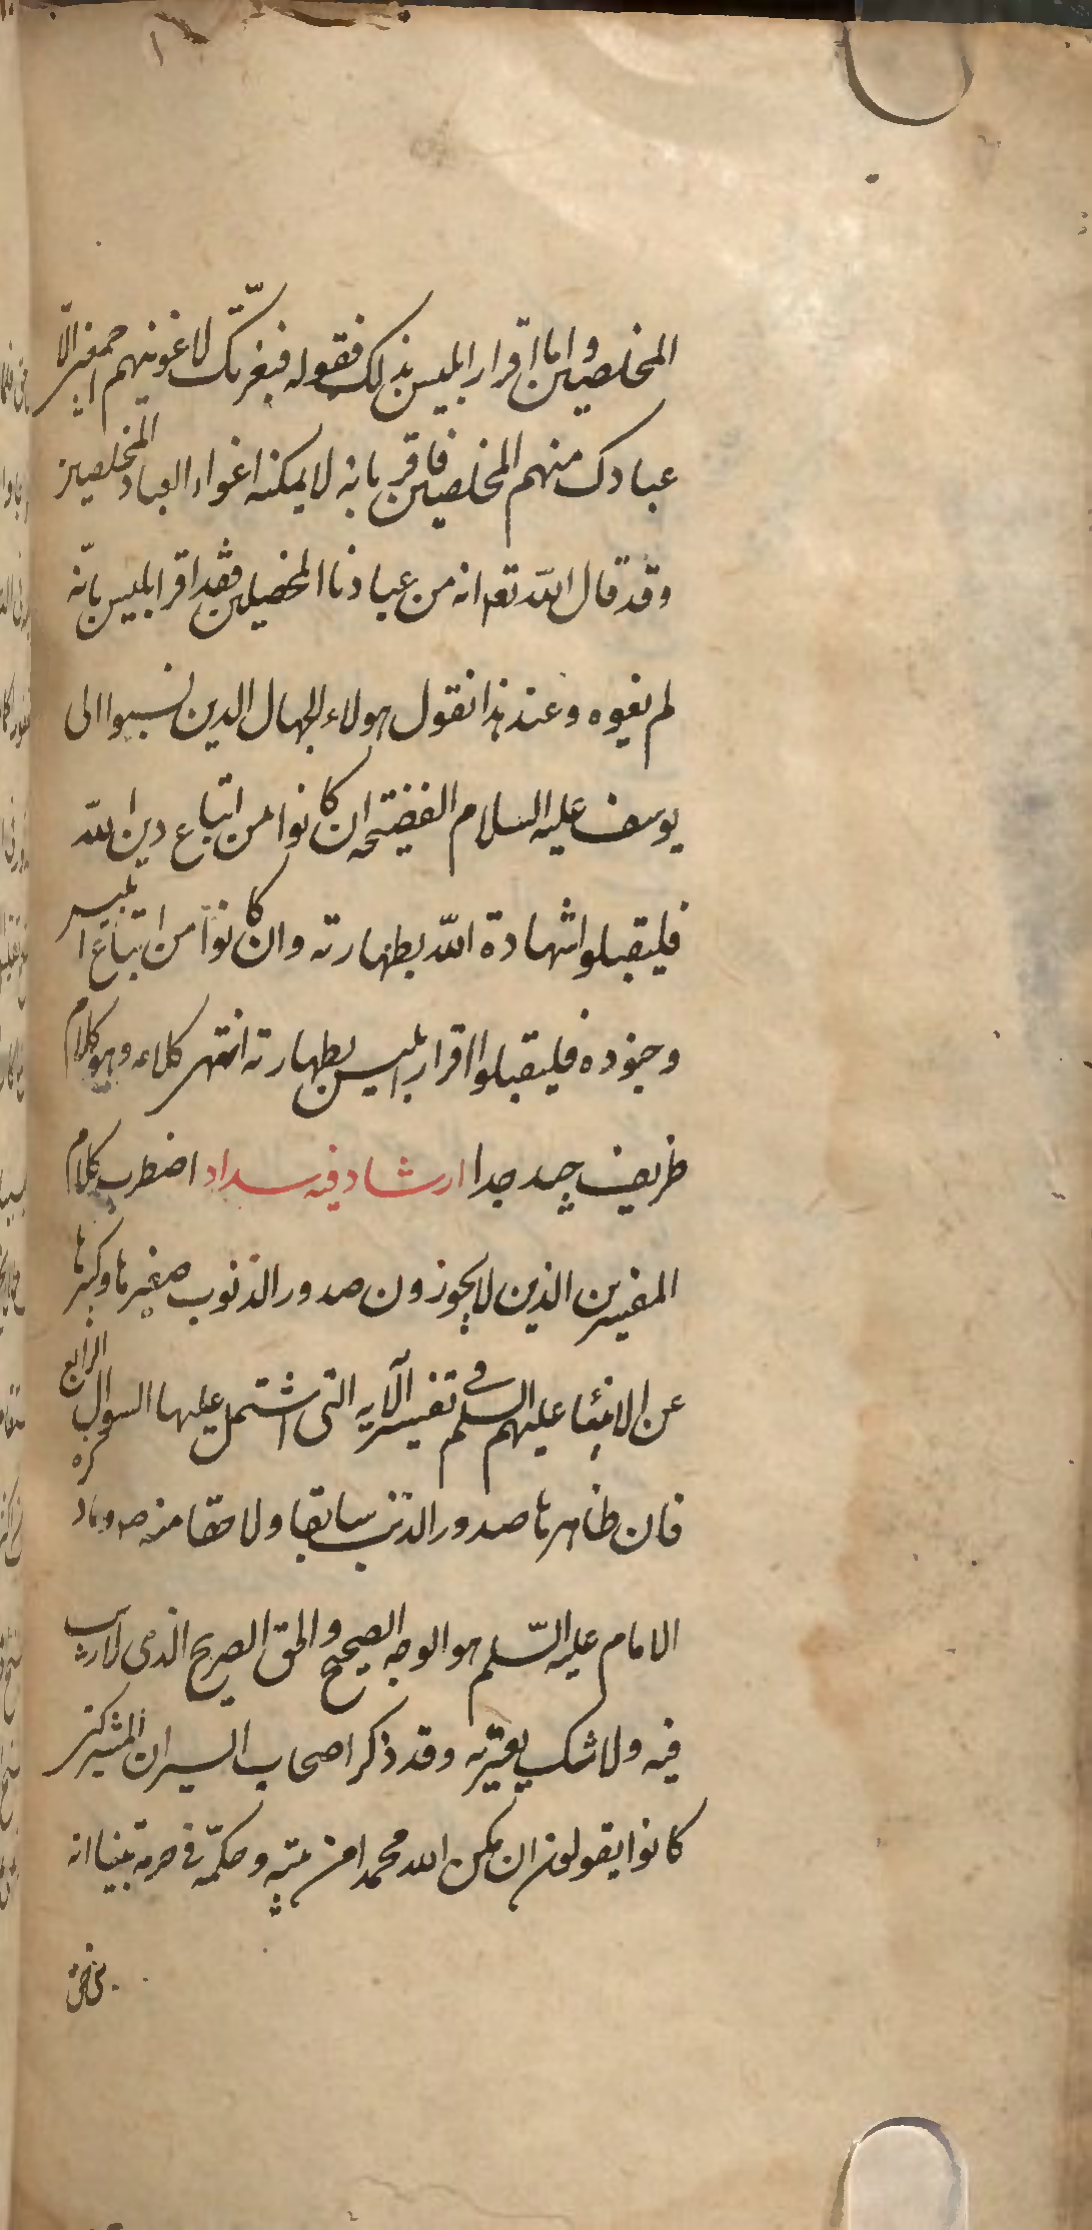 المخلصين واما اقرار ابليس بذلك فقوله فبعزتك لاغوينهم اجمعين الّا
عبادك منهم المخلصين فاقر بانه لا يمكنه اغواء العباد المخلصين
وقد قال الله تعم انه من عبادنا المخصلين فقد اقر ابليس بانّه
لم يغوه وعند هذا نقول هولاء الجهال الدين نسبوا الى
يوسف عليه السلام الفضيحه ان كانوا من اتباع دين الله
فليقبلوا شهادة الله بطهارته وان كانوا من اتباع ابليس
وجنوده فليقبلوا اقرار ابليس بطهارته انتهى كلامه وهو كلام
ظريف جيد جدا ارشاد فيه سداد اضطرب كلام
المفسرين الذين لا يجوزون صدور الذنوب صغيرها وكبيرها
عن الانبياء عليهم السلم في تفسير الآيه التى اشتمل عليها السوال الرابع
فان ظاهرها صدور الذنب سابقا ولاحقا منه ص وما ذكره
الامام عليه السّلم هو الوجه الصحيح والحق الصريح الذى لا ريب
فيه ولا شك يعتريه وقد ذكر اصحاب السير ان المشركين
كانوا يقولون ان مكن الله محمدا من بيته وحكمّه في حرمه تبينا انه
نبى حق